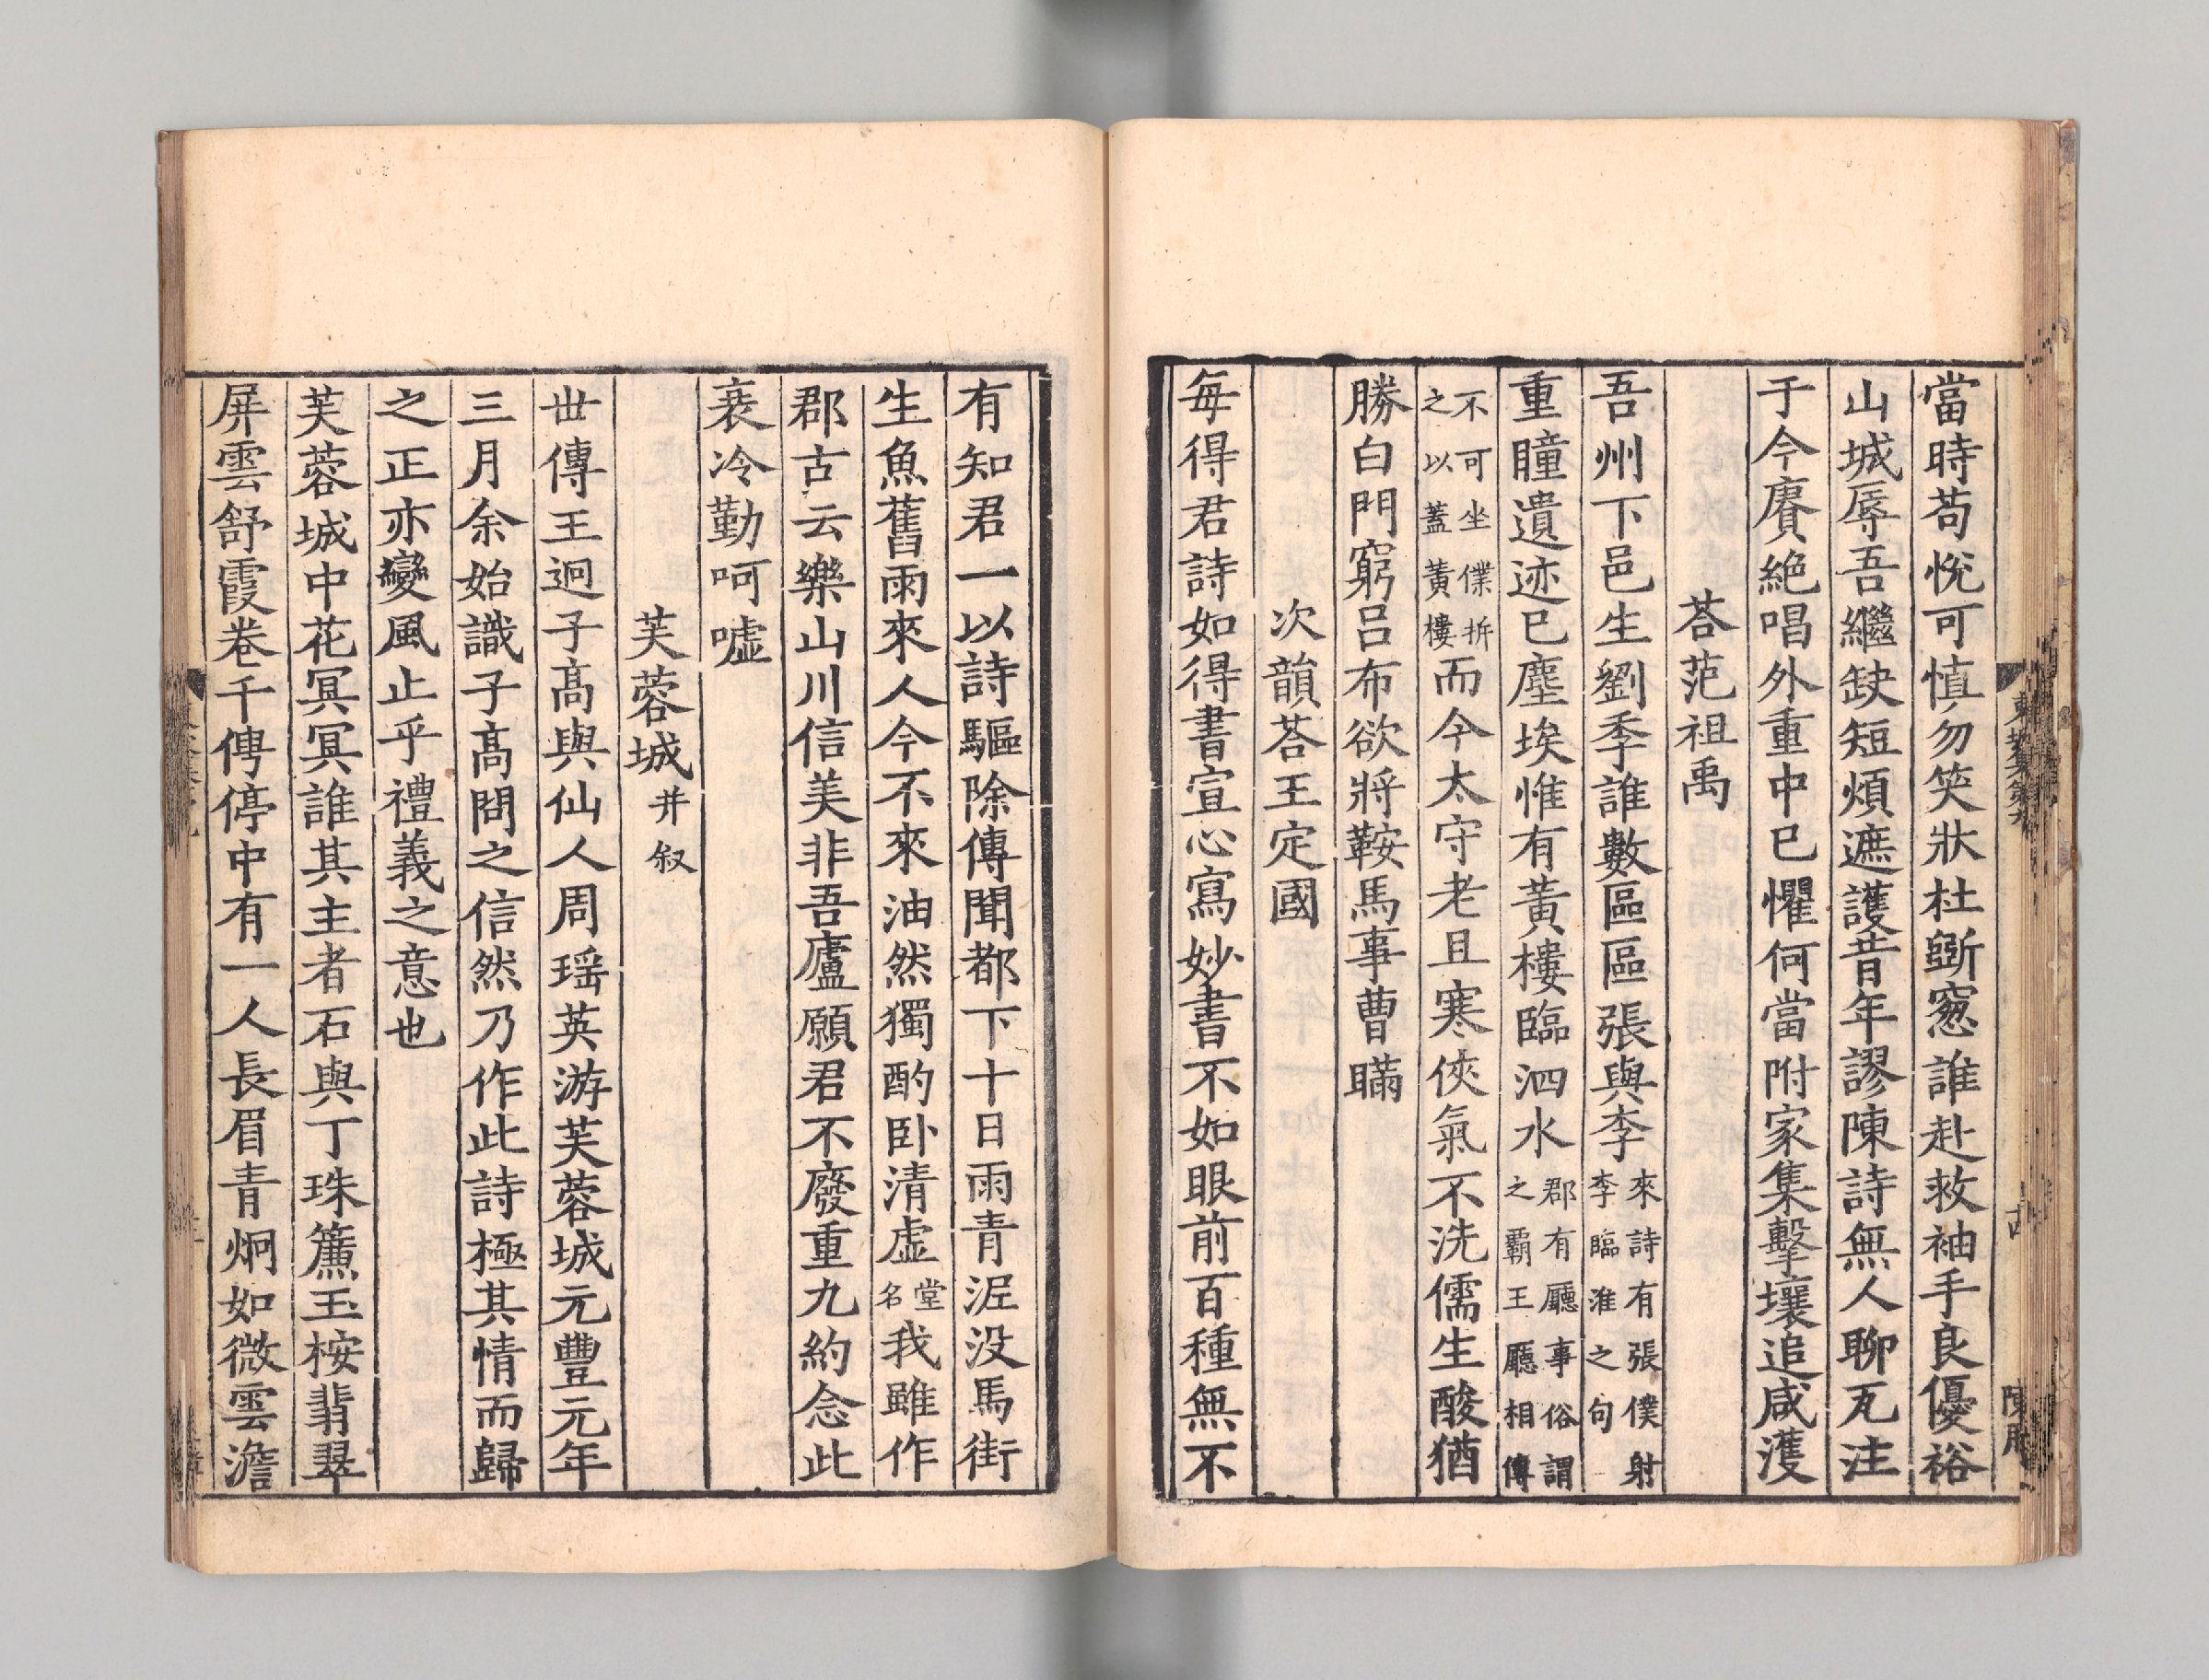 當時苟悅可慎勿笑狀杜斲窓誰赴救袖手良優裕
山城辱吾繼缺短煩遮護昔年謬陳詩無人聊瓦注
于今賡絶唱外重中已懼何當附家集擊壤追咸濩
荅范祖禹
吾州下邑生劉季誰數區區張與李來詩有張僕射李臨淮之句
重瞳遺迹已塵埃惟有黃樓臨泗水郡有廳事俗謂之霸王廳相傳
不可坐僕拆之以蓋黃樓而今太守老且寒俠氣不洗儒生酸猶
勝白門窮呂布欲將鞍馬事曹瞞
次韻荅王定國
每得君詩如得書宣心寫妙書不如眼前百種無不
有知君一以詩驅除傳聞都下十日雨青泥没馬街
生魚舊雨來人今不來油然獨酌卧清虛堂名我雖作
郡古云樂山川信美非吾廬願君不廢重九約念此
衰冷勤呵噓
芙蓉城并叙
世傳王迥子高與仙人周瑶英游芙蓉城元豐元年
三月余始識子高問之信然乃作此詩極其情而歸
之正亦變風止乎禮義之意也
芙蓉城中花冥冥誰其主者石與丁珠簾玉桉翡翠
屏雲舒霞卷千俜停中有一人長眉青炯如微雲澹